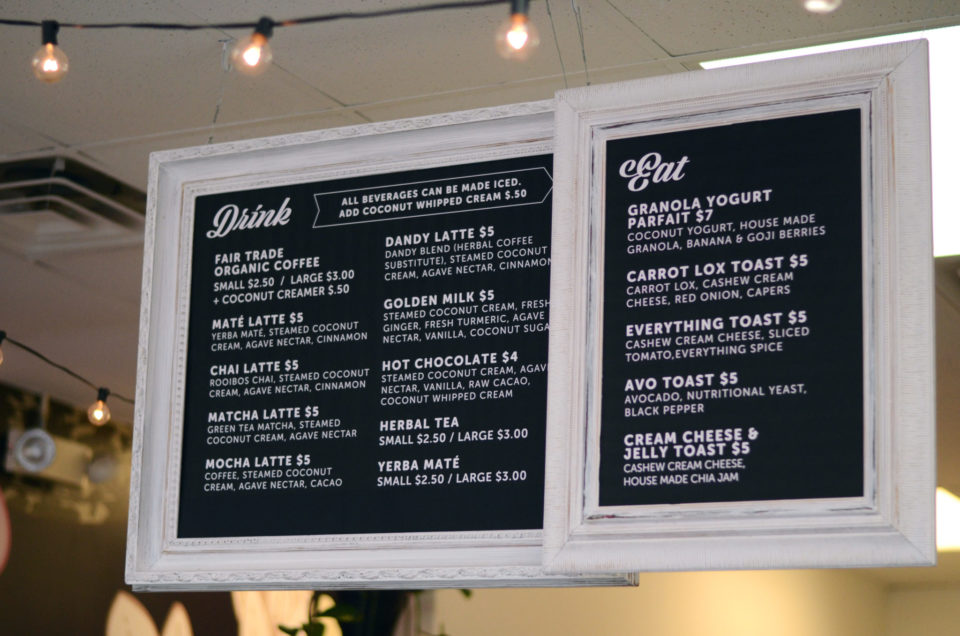 Drink
ALL BEVERAGES CAN BE MADE ICED.
ADD COCONUT WHIPPED CREAM $.50
FAIR TRADE
ORGANIC COFFEE
SMALL $2.50 / LARGE $3.00
+ COCONUT CREAMER $.50
MATÉ LATTE $5
YERBA MATÉ, STEAMED COCONUT
CREAM, AGAVE NECTAR, CINNAMON
CHAI LATTE $5
ROOIBOS CHAI, STEAMED COCONUT
CREAM, AGAVE NECTAR, CINNAMON
MATCHA LATTE $5
GREEN TEA MATCHA, STEAMED
COCONUT CREAM, AGAVE NECTAR
MOCHA LATTE $5
COFFEE, STEAMED COCONUT
CREAM, AGAVE NECTAR, CACAO
DANDY LATTE $5
DANDY BLEND (HERBAL COFFEE
SUBSTITUTE), STEAMED COCONUT
CREAM, AGAVE NECTAR, CINNAMON
GOLDEN MILK $5
STEAMED COCONUT CREAM, FRESH
GINGER, FRESH TURMERIC, AGAVE
NECTAR, VANILLA, COCONUT SUGA
HOT CHOCOLATE $4
STEAMED COCONUT CREAM, AGAV
NECTAR, VANILLA, RAW CACAO,
COCONUT WHIPPED CREAM
HERBAL TEA
SMALL $2.50 / LARGE $3.00
YERBA MATÉ
SMALL $2.50 / LARGE $3.00
Eat
GRANOLA YOGURT
PARFAIT $7
COCONUT YOGURT, HOUSE MADE
GRANOLA, BANANA & GOJI BERRIES
CARROT LOX TOAST $5
CARROT LOX, CASHEW CREAM
CHEESE, RED ONION, CAPERS
EVERYTHING TOAST $5
CASHEW CREAM CHEESE, SLICED
TOMATO,EVERYTHING SPICE
AVO TOAST $5
AVOCADO, NUTRITIONAL YEAST,
BLACK PEPPER
CREAM CHEESE &
JELLY TOAST $5
CASHEW CREAM CHEESE,
HOUSE MADE CHIA JAM